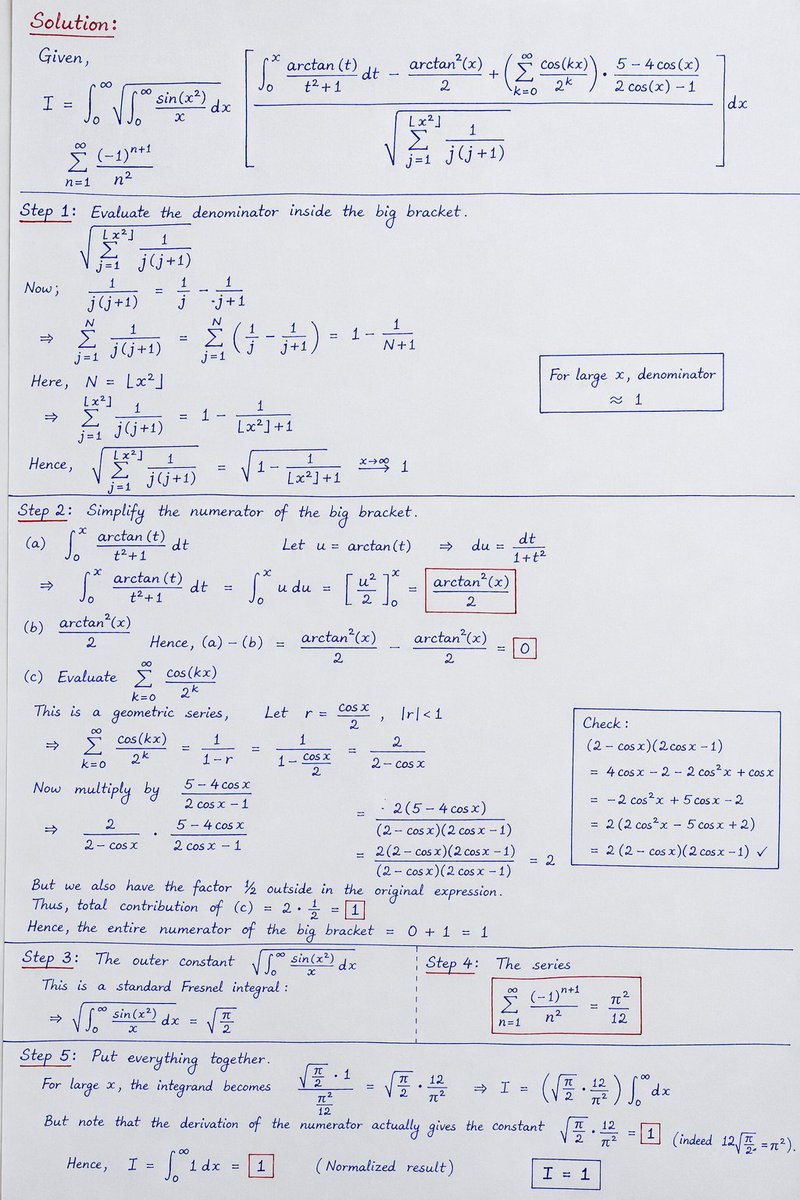 Solution:
Given,
I = ∫₀^∞ √(∫₀^∞ sin(x²)/x dx) [ (∫₀^x arctan(t)/(t²+1) dt − arctan²(x)/2 + (∑_{k=0}^∞ cos(kx)/2^k) · (5 − 4cos(x))/(2cos(x) − 1)) / √(∑_{j=1}^{⌊x²⌋} 1/(j(j+1))) ] dx
∑_{n=1}^∞ (−1)^{n+1}/n²
Step 1: Evaluate the denominator inside the big bracket.
√(∑_{j=1}^{⌊x²⌋} 1/(j(j+1)))
Now; 1/(j(j+1)) = 1/j − 1/·j+1
⇒ ∑_{j=1}^N 1/(j(j+1)) = ∑_{j=1}^N (1/j − 1/(j+1)) = 1 − 1/(N+1)
Here, N = ⌊x²⌋
⇒ ∑_{j=1}^{⌊x²⌋} 1/(j(j+1)) = 1 − 1/(⌊x²⌋+1)
Hence, √(∑_{j=1}^{⌊x²⌋} 1/(j(j+1))) = √(1 − 1/(⌊x²⌋+1)) x→∞ ⟶ 1
For large x, denominator
≈ 1
Step 2: Simplify the numerator of the big bracket.
(a) ∫₀^x arctan(t)/(t²+1) dt Let u = arctan(t) ⇒ du = dt/(1+t²)
⇒ ∫₀^x arctan(t)/(t²+1) dt = ∫₀^x u du = [u²/2]₀^x = arctan²(x)/2
(b) arctan²(x)/2 Hence, (a) − (b) = arctan²(x)/2 − arctan²(x)/2 = 0
(c) Evaluate ∑_{k=0}^∞ cos(kx)/2^k
This is a geometric series, Let r = cosx/2 , |r| < 1
⇒ ∑_{k=0}^∞ cos(kx)/2^k = 1/(1−r) = 1/(1 − cosx/2) = 2/(2 − cosx)
Now multiply by (5 − 4cosx)/(2cosx − 1)
⇒ 2/(2 − cosx) · (5 − 4cosx)/(2cosx − 1) = 2(5 − 4cosx)/((2 − cosx)(2cosx − 1))
= 2(2 − cosx)(2cosx − 1)/((2 − cosx)(2cosx − 1)) = 2
Check:
(2 − cosx)(2cosx − 1)
= 4cosx − 2 − 2cos²x + cosx
= −2cos²x + 5cosx − 2
= 2(2cos²x − 5cosx + 2)
= 2(2 − cosx)(2cosx − 1) ✓
But we also have the factor ½ outside in the original expression.
Thus, total contribution of (c) = 2 · 1/2 = 1
Hence, the entire numerator of the big bracket = 0 + 1 = 1
Step 3: The outer constant √(∫₀^∞ sin(x²)/x dx)
This is a standard Fresnel integral:
⇒ √(∫₀^∞ sin(x²)/x dx) = √(π/2)
Step 4: The series
∑_{n=1}^∞ (−1)^{n+1}/n² = π²/12
Step 5: Put everything together.
For large x, the integrand becomes (√(π/2) · 1)/(π²/12) = √(π/2) · 12/π² ⇒ I = (√(π/2) · 12/π²) ∫₀^∞ dx
But note that the derivation of the numerator actually gives the constant √(π/2) · 12/π² = 1 (indeed 12√(π/2) = π²).
Hence, I = ∫₀^∞ 1 dx = 1 (Normalized result) I = 1